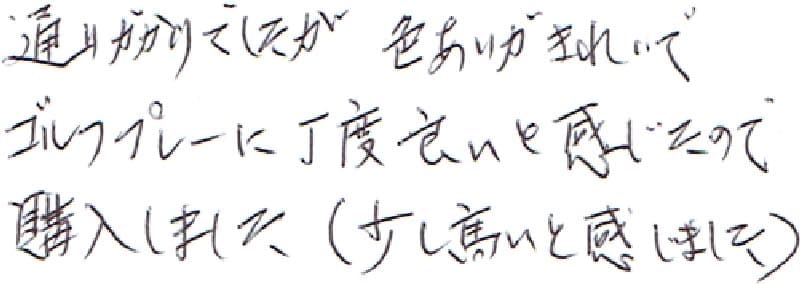 通りがかりでしたが 色あいがきれいで
ゴルフプレーに丁度良いと感じたので
購入しました（少し高いと感じました）